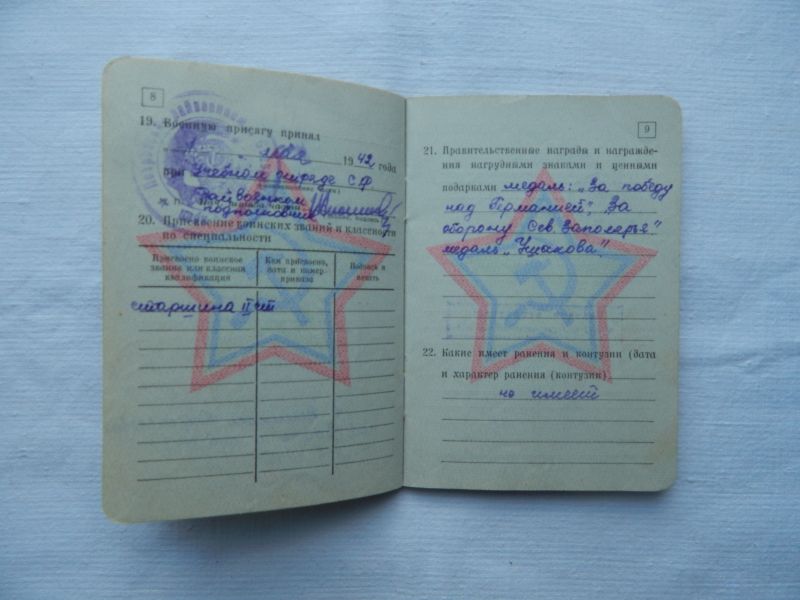 8
19. Военную присягу принял
мая 1942 года
при Учебном отряде СФ
Райвоенком
подполковник
20. Присвоение воинских званий и классности
по специальности
Присвоено воинское
звание или классная
квалификация
Кем присвоено,
дата и номер
приказа
Подпись и
печать
старшина II ст
9
21. Правительственные награды и награжде-
ния нагрудными знаками и ценными
подарками медаль: „За победу
над Германией", За
оборону Сев. Заполярья"
медаль „Ушакова."
22. Какие имеет ранения и контузии (дата
и характер ранения (контузии)
не имеет